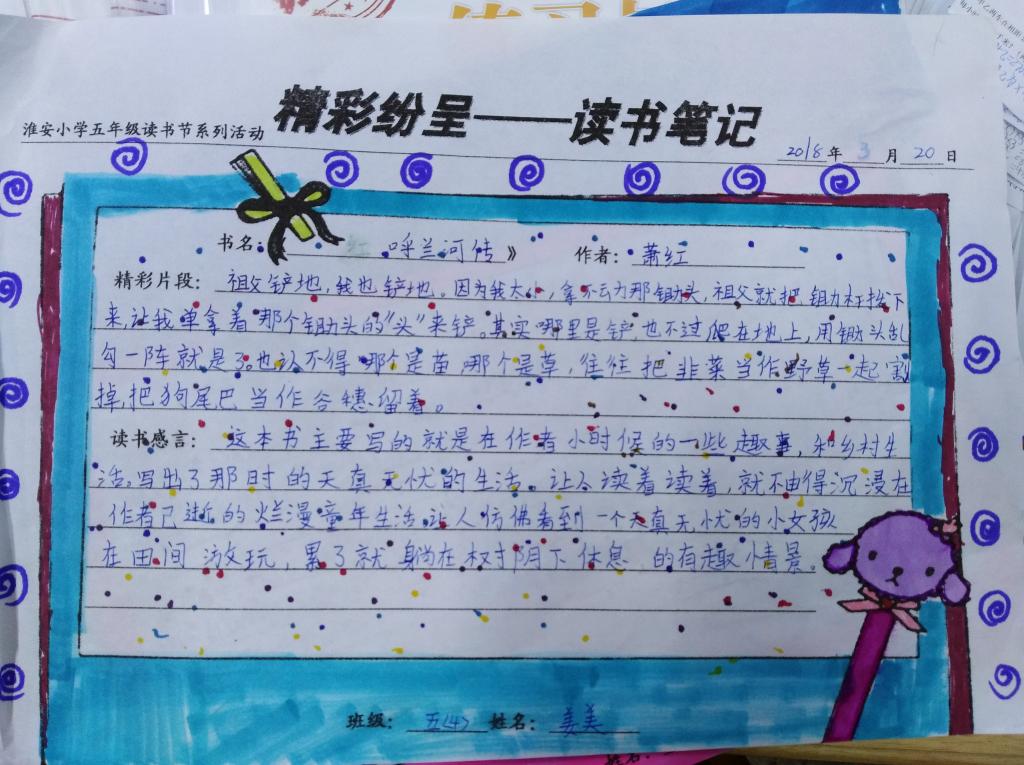 精彩纷呈——读书笔记
淮安小学五年级读书节系列活动
2018年3月20日
书名：呼兰河传》 作者：萧红
精彩片段：祖父铲地，我也铲地。因为我太小，拿不动那锄头，祖父就把锄杠拔下
来，让我单拿着那个锄头的“头”来铲。其实哪里是铲，也不过爬在地上，用锄头乱
勾一阵就是了。也认不得哪个是苗哪个是草，往往把韭菜当作野草一起割
掉，把狗尾巴当作谷穗留着。
读书感言：这本书主要写的就是在作者小时候的一些趣事，和乡村生
活。写出了那时的天真无忧的生活。让人读着读着，就不由得沉浸在
作者己逝的烂漫童年生活，让人仿佛看到一个天真无忧的小女孩
在田间放玩，累了就躺在树阴下休息的有趣情景。
班级：五(4) 姓名：姜美